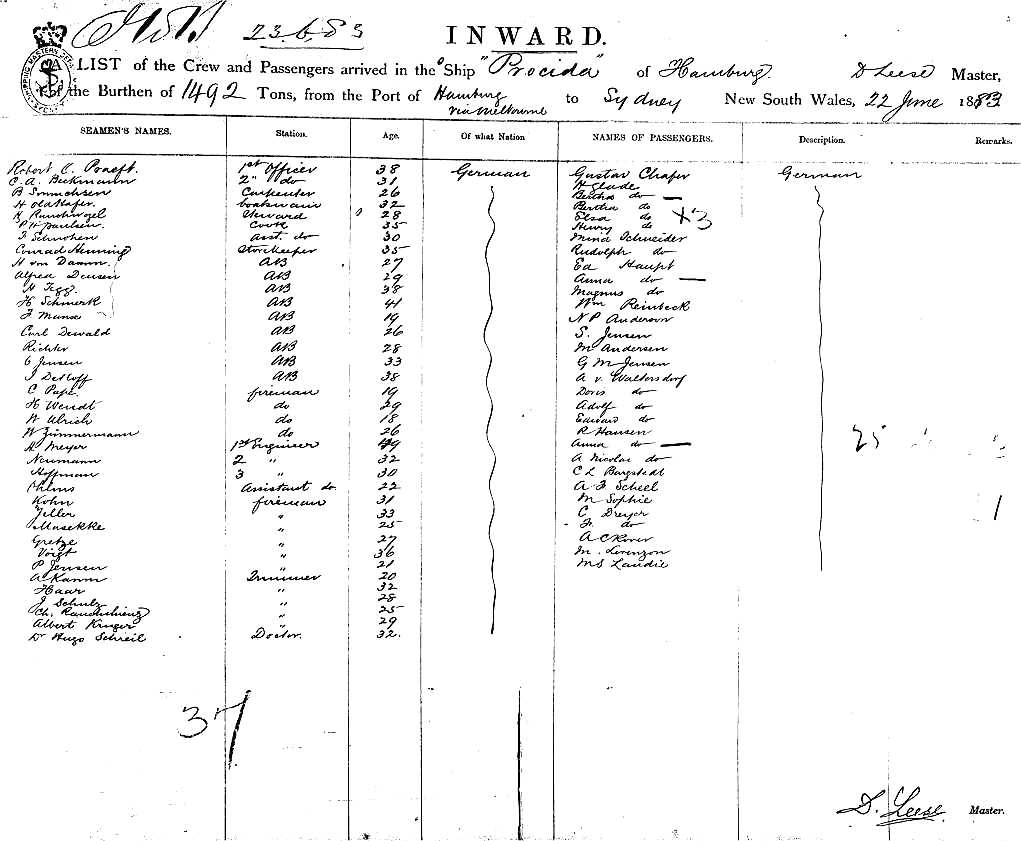 23.6.83
INWARD.
LIST of the Crew and Passengers arrived in the Ship "Procida" of Hamburg. D Leese Master,
of the Burthen of 1492 Tons, from the Port of Hamburg via Melbourne to Sydney New South Wales, 22 June 1883
SEAMEN'S NAMES. Station. Age. Of what Nation NAMES OF PASSENGERS. Description. Remarks.
Robert C. 1st Officer 38 German Gustav Chafer German
C. A. Beckmann 2" do 31 H Glade
B Carpenter 26 Bertha do —
H boatswain 32 Bertha do
Steward 28 Elsa do X3
P H Paulsen. Cook 35 Henry do
Asst. do 30 Mina Schneider
Conrad Henning Storekeeper 35 Rudolph do
H von Damm. AB 27 Ed Haupt
Alfred AB 29 Anna do —
H AB 38 Magnus do
H Schmerk AB 41 Wm Reinbeck
AB 19 N P Anderson
Carl Dewald AB 26 S. Jensen
Richter AB 28 M Andersen
C Jensen AB 33 G M Jensen
J Detloff AB 38 A v. Waltersdorf
C Pape. fireman 19 Doris do
H Wendt do 29 Adolf do
W Ulrich do 18 Edward do
W Zimmermann do 26 R Hansen
H Meyer 1st Engineer 49 Anna do — 25
Neumann 2 " 32 A Nicolai do
Hoffman 3 " 30 C L Bargstedt
Assistant do 22 A F Scheel
Kohn fireman 31 M Sophie
Zeller " 33 C Dreyer
Masekke " 25 Fr. do
Gretze " 27 A C
Voigt " 36 M. Lorenzon
P Jensen " 21 M S Landie
A Kamm Trimmer 20
Haar " 32
J Schulz " 28
Ch. " 25
Albert Kruger " 29
Dr Hugo Schieil Doctor. 32.
37
D. Leese. Master.